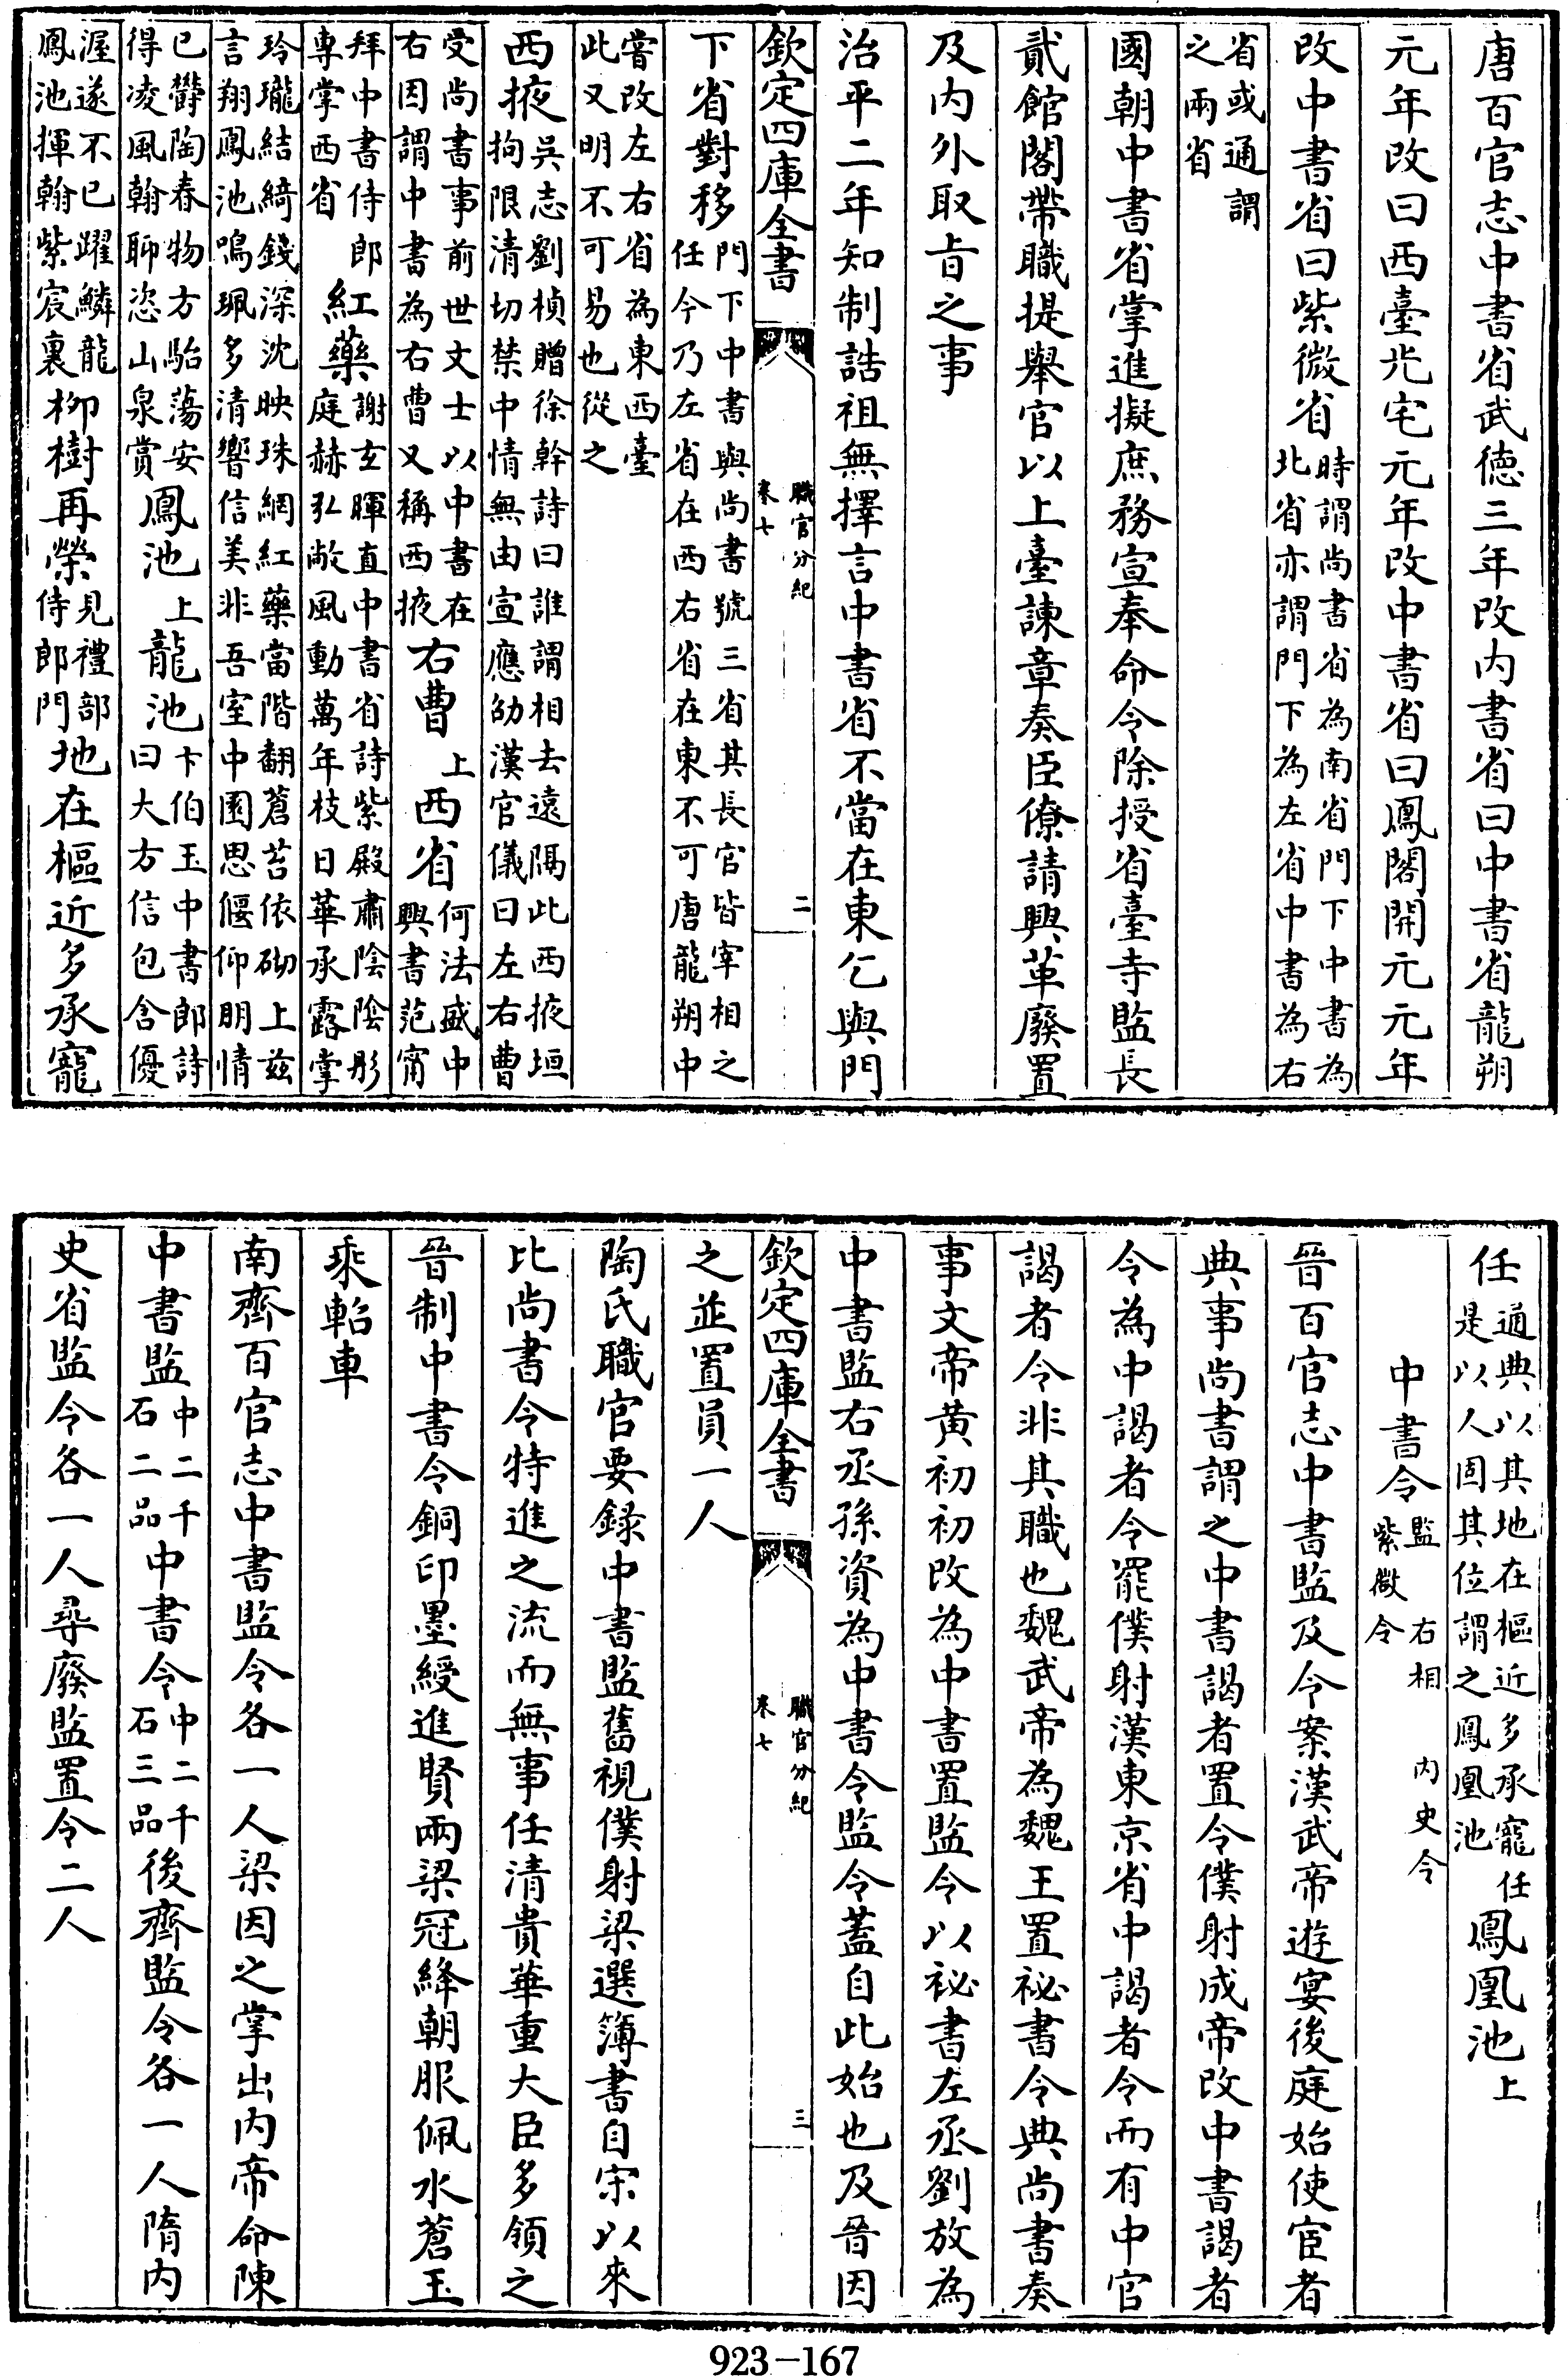 唐百官志中書省武德三年改内書省曰中書省龍朔
元年改曰西臺光宅元年改中書省曰鳳閣開元元年
改中書省曰紫微省時謂尚書省為南省門下中書為北省亦謂門下為左省中書為右
省或通謂之兩省
國朝中書省掌進擬庶務宣奉命令除授省臺寺監長
貳館閣帶職提舉官以上臺諫章奏臣僚請興革廢置
及内外取旨之事
治平二年知制誥祖無擇言中書省不當在東乞與門
欽定四庫全書 職官分紀 卷七 二
下省對移門下中書與尚書號三省其長官皆宰相之任今乃左省在西右省在東不可唐龍朔中
嘗改左右省為東西臺此又明不可易也從之
西掖吳志劉楨贈徐幹詩曰誰謂相去遠隔此西掖垣拘限清切禁中情無由宣應劭漢官儀曰左右曹
受尚書事前世文士以中書在右因謂中書為右曹又稱西掖右曹上西省何法盛中興書范甯
拜中書侍郎專掌西省紅藥謝玄暉直中書省詩紫殿肅陰陰彤庭赫弘敞風動萬年枝日華承露掌
玲瓏結綺錢深沈映珠網紅藥當階翻蒼苔依砌上兹言翔鳳池鳴珮多清響信美非吾室中園思偃仰朋情
已欝陶春物方駘蕩安得凌風翰聊恣山泉賞鳳池上龍池卞伯玉中書郎詩曰大方信包含優
渥遂不已躍鱗龍鳳池揮翰紫宸裏柳樹再榮見禮部侍郎門地在樞近多承寵
任通典以其地在樞近多承寵任是以人固其位謂之鳳凰池鳳凰池上
中書令監 右相 内史令 紫微令
晉百官志中書監及令案漢武帝遊宴後庭始使宦者
典事尚書謂之中書謁者置令僕射成帝改中書謁者
令為中謁者令罷僕射漢東京省中謁者令而有中官
謁者令非其職也魏武帝為魏王置祕書令典尚書奏
事文帝黄初初改為中書置監令以祕書左丞劉放為
中書監右丞孫資為中書令監令蓋自此始也及晉因
欽定四庫全書 職官分紀 卷七 三
之並置員一人
陶氏職官要錄中書監舊視僕射梁選簿書自宋以來
比尚書令特進之流而無事任清貴華重大臣多領之
晉制中書令銅印墨綬進賢兩梁冠絳朝服佩水蒼玉
乘軺車
南齊百官志中書監令各一人梁因之掌出内帝命陳
中書監中二千石二品中書令中二千石三品後齊監令各一人隋内
史省監令各一人尋廢監置令二人
923-167